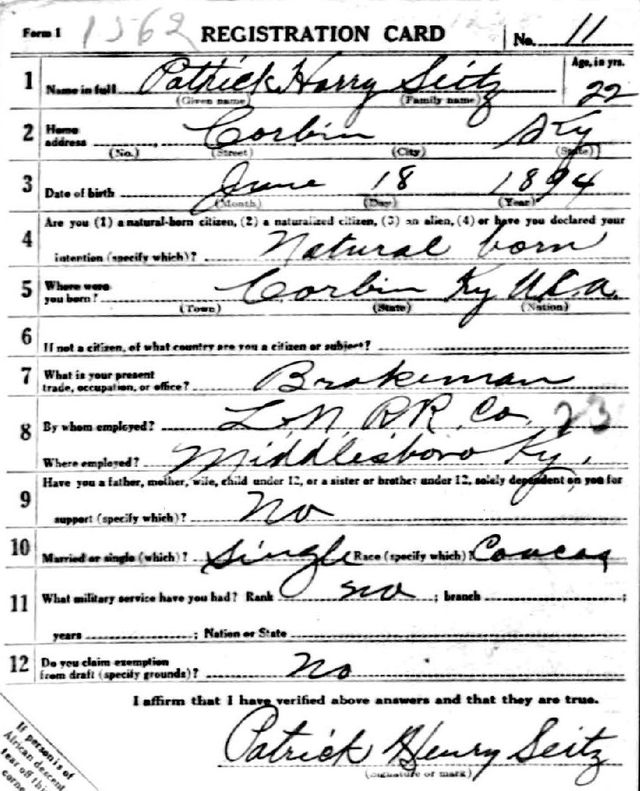 Form 1 1562 REGISTRATION CARD No. 11
1 Name in full Patrick Harry Seitz Age, in yrs. 22
(Given name) (Family name)
2 Home address Corbin Ky
(No.) (Street) (City) (State)
3 Date of birth June 18 1894
(Month) (Day) (Year)
Are you (1) a natural-born citizen, (2) a naturalized citizen, (3) an alien, (4) or have you declared your
4 intention (specify which)? Natural born
5 Where were you born? Corbin Ky U.S.A.
(Town) (State) (Nation)
6 If not a citizen, of what country are you a citizen or subject?
7 What is your present trade, occupation, or office? Brakeman
8 By whom employed? L. N. R.R. Co. 23
Where employed? Middlesboro Ky.
9 Have you a father, mother, wife, child under 12, or a sister or brother under 12, solely dependent on you for
support (specify which)? No
10 Married or single (which)? Single Race (specify which)? Caucas
11 What military service have you had? Rank no ; branch ;
years ; Nation or State
12 Do you claim exemption from draft (specify grounds)? No
I affirm that I have verified above answers and that they are true.
Patrick Henry Seitz
(Signature or mark)
If person is of
African descent
tear off this
corne